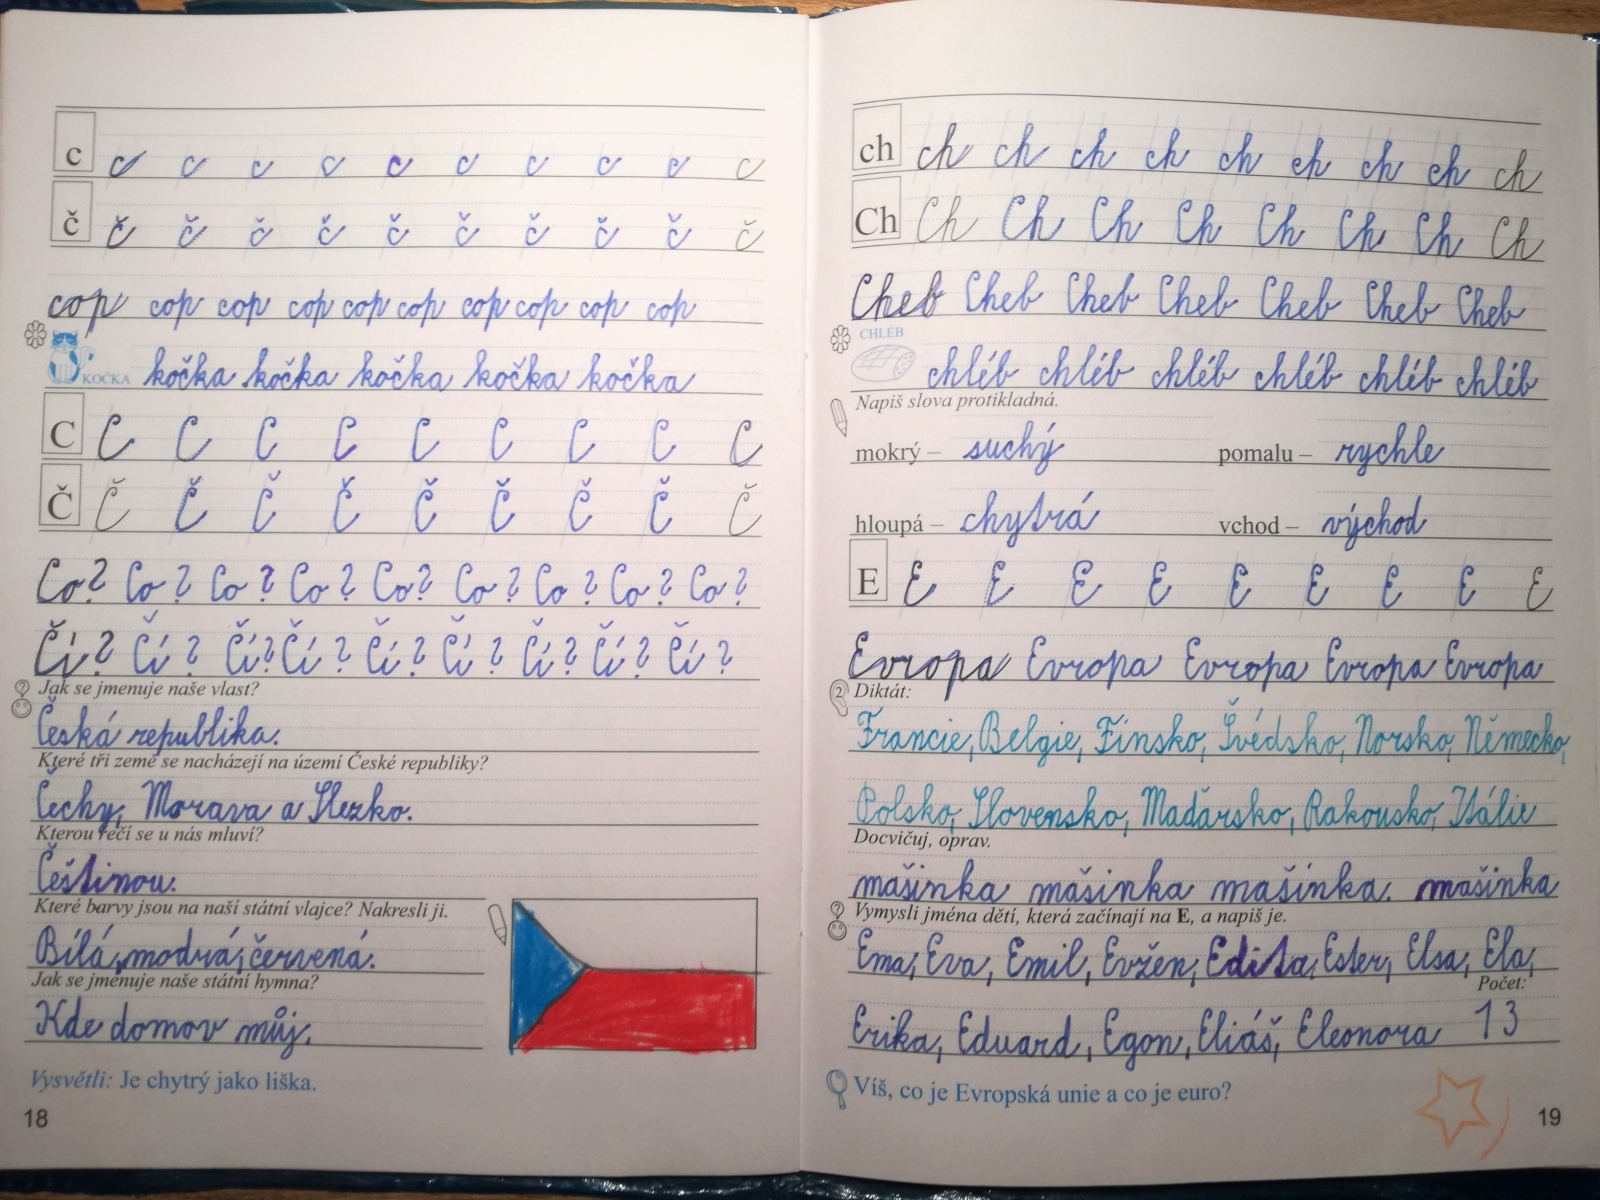 c c c c c c c c c c c
č č č č č č č č č č č
cop cop cop cop cop cop cop cop cop cop
KOČKA kočka kočka kočka kočka kočka
C C C C C C C C C C
Č Č Č Č Č Č Č Č Č Č
Co? Co? Co? Co? Co? Co? Co? Co? Co?
Čí? Čí? Čí? Čí? Čí? Čí? Čí? Čí? Čí?
Jak se jmenuje naše vlast?
Česká republika.
Které tři země se nacházejí na území České republiky?
Čechy, Morava a Slezko.
Kterou řečí se u nás mluví?
Češtinou.
Které barvy jsou na naší státní vlajce? Nakresli ji.
Bílá, modrá, červená.
Jak se jmenuje naše státní hymna?
Kde domov můj.
Vysvětli: Je chytrý jako liška.
18
ch ch ch ch ch ch ch ch ch ch
Ch Ch Ch Ch Ch Ch Ch Ch Ch
Cheb Cheb Cheb Cheb Cheb Cheb Cheb
CHLÉB
chléb chléb chléb chléb chléb chléb
Napiš slova protikladná.
mokrý – suchý pomalu – rychle
hloupá – chytrá vchod – východ
E E E E E E E E E E
Evropa Evropa Evropa Evropa Evropa
2 Diktát:
Francie, Belgie, Finsko, Švédsko, Norsko, Německo,
Polsko, Slovensko, Maďarsko, Rakousko, Itálie
Docvičuj, oprav.
mašinka mašinka mašinka. mašinka
Vymysli jména dětí, která začínají na E, a napiš je.
Ema, Eva, Emil, Evžen, Edita, Ester, Elsa, Ela,
Počet:
Erika, Eduard, Egon, Eliáš, Eleonora 13
Víš, co je Evropská unie a co je euro?
19